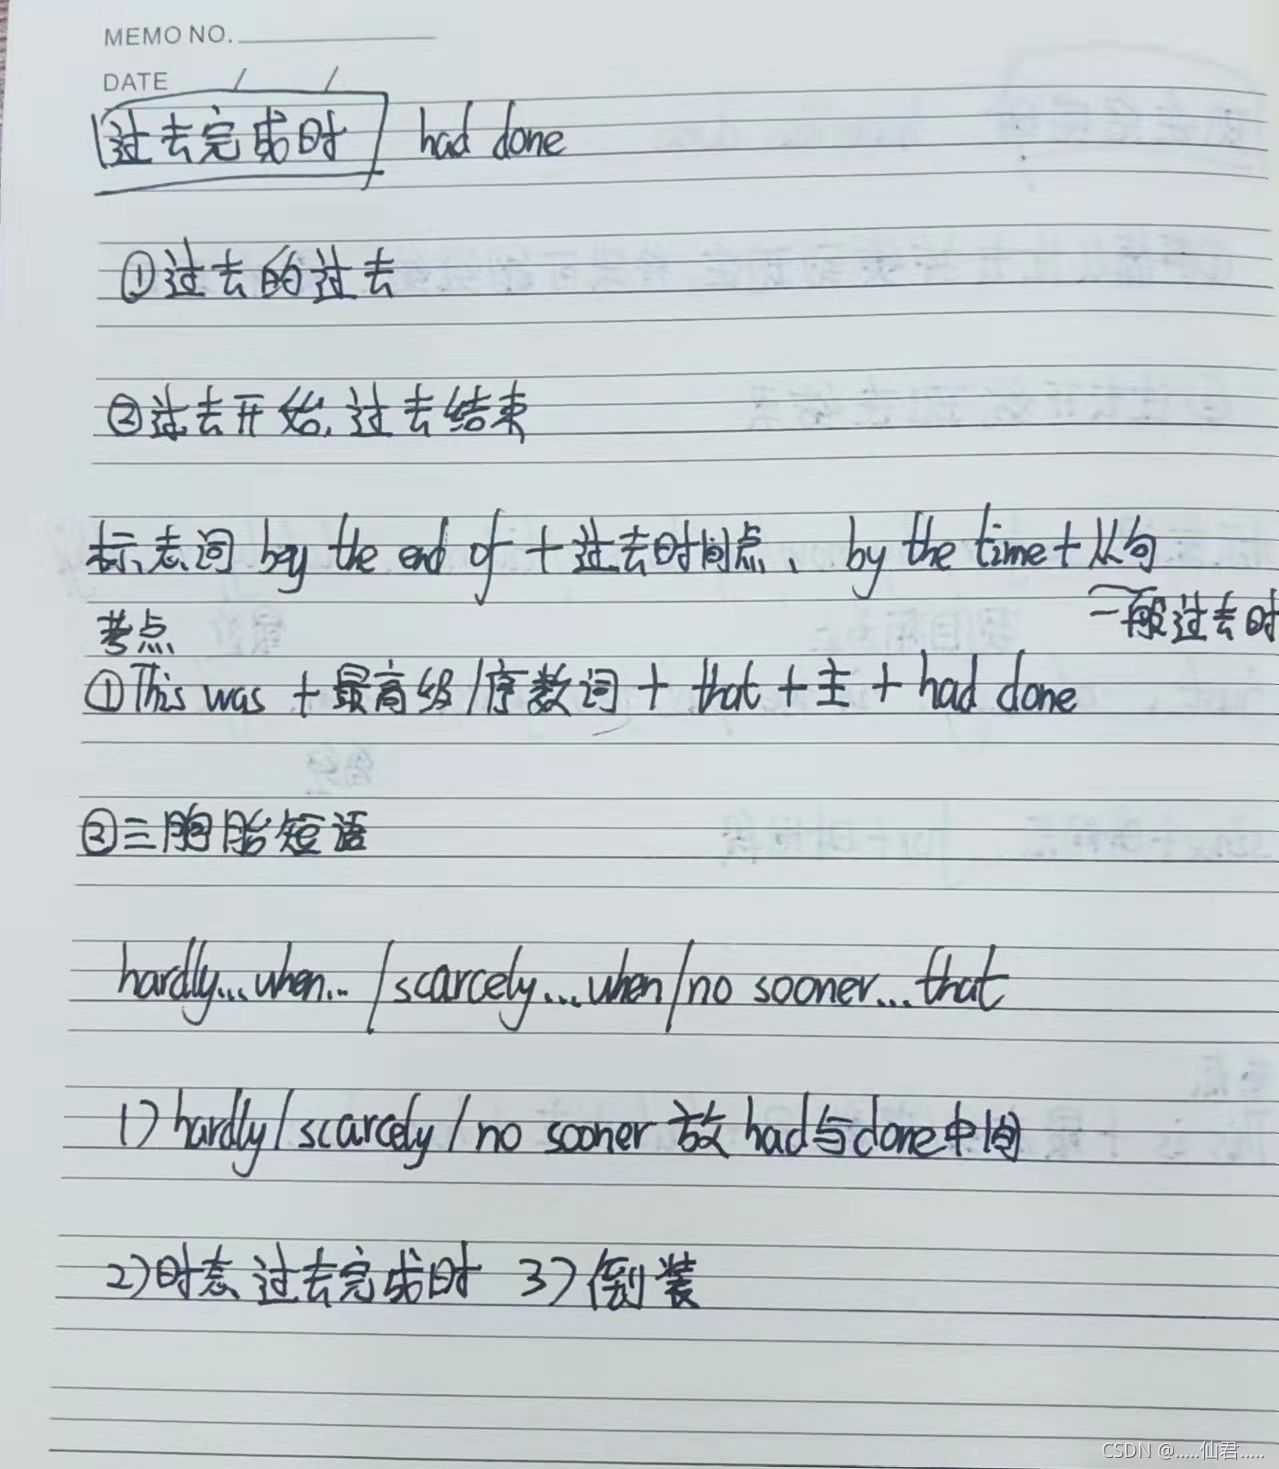 MEMO NO.
DATE / /
过去完成时 had done
①过去的过去
②过去开始,过去结束
标志词 by the end of + 过去时间点、by the time + 从句
一般过去时
考点
①This was + 最高级/序数词 + that + 主 + had done
②三胞胎短语
hardly...when... / scarcely...when/no sooner...that
1) hardly/scarcely/no sooner 放 had与done中间
2)时态 过去完成时 3)倒装
CSDN @.....仙君.....